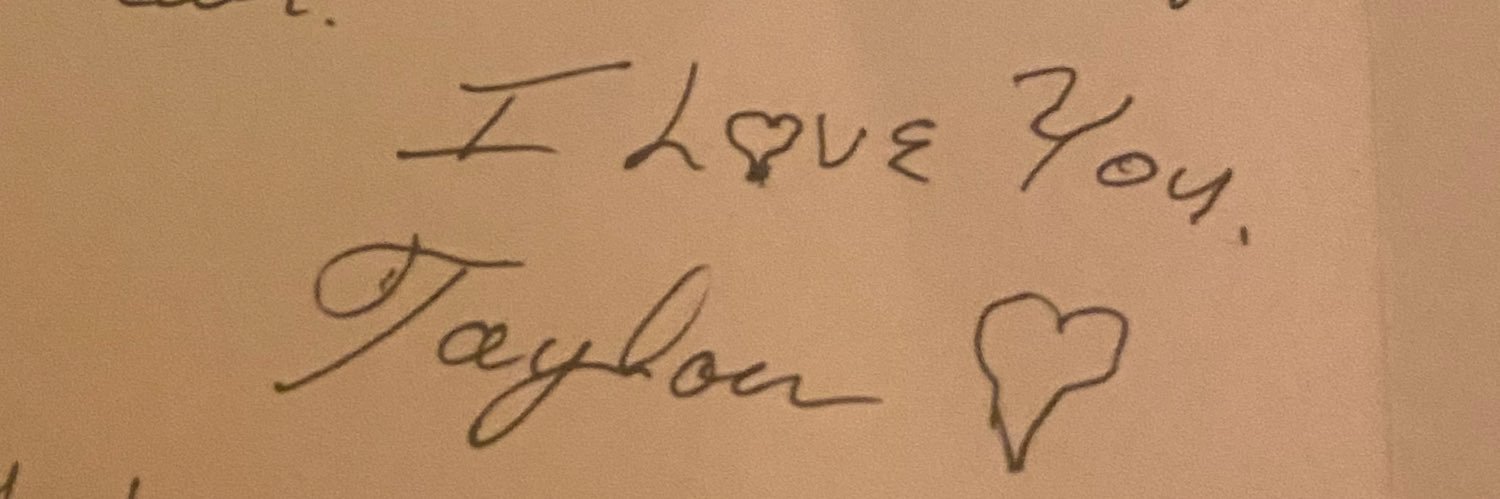 I Love You.
Taylor ♡